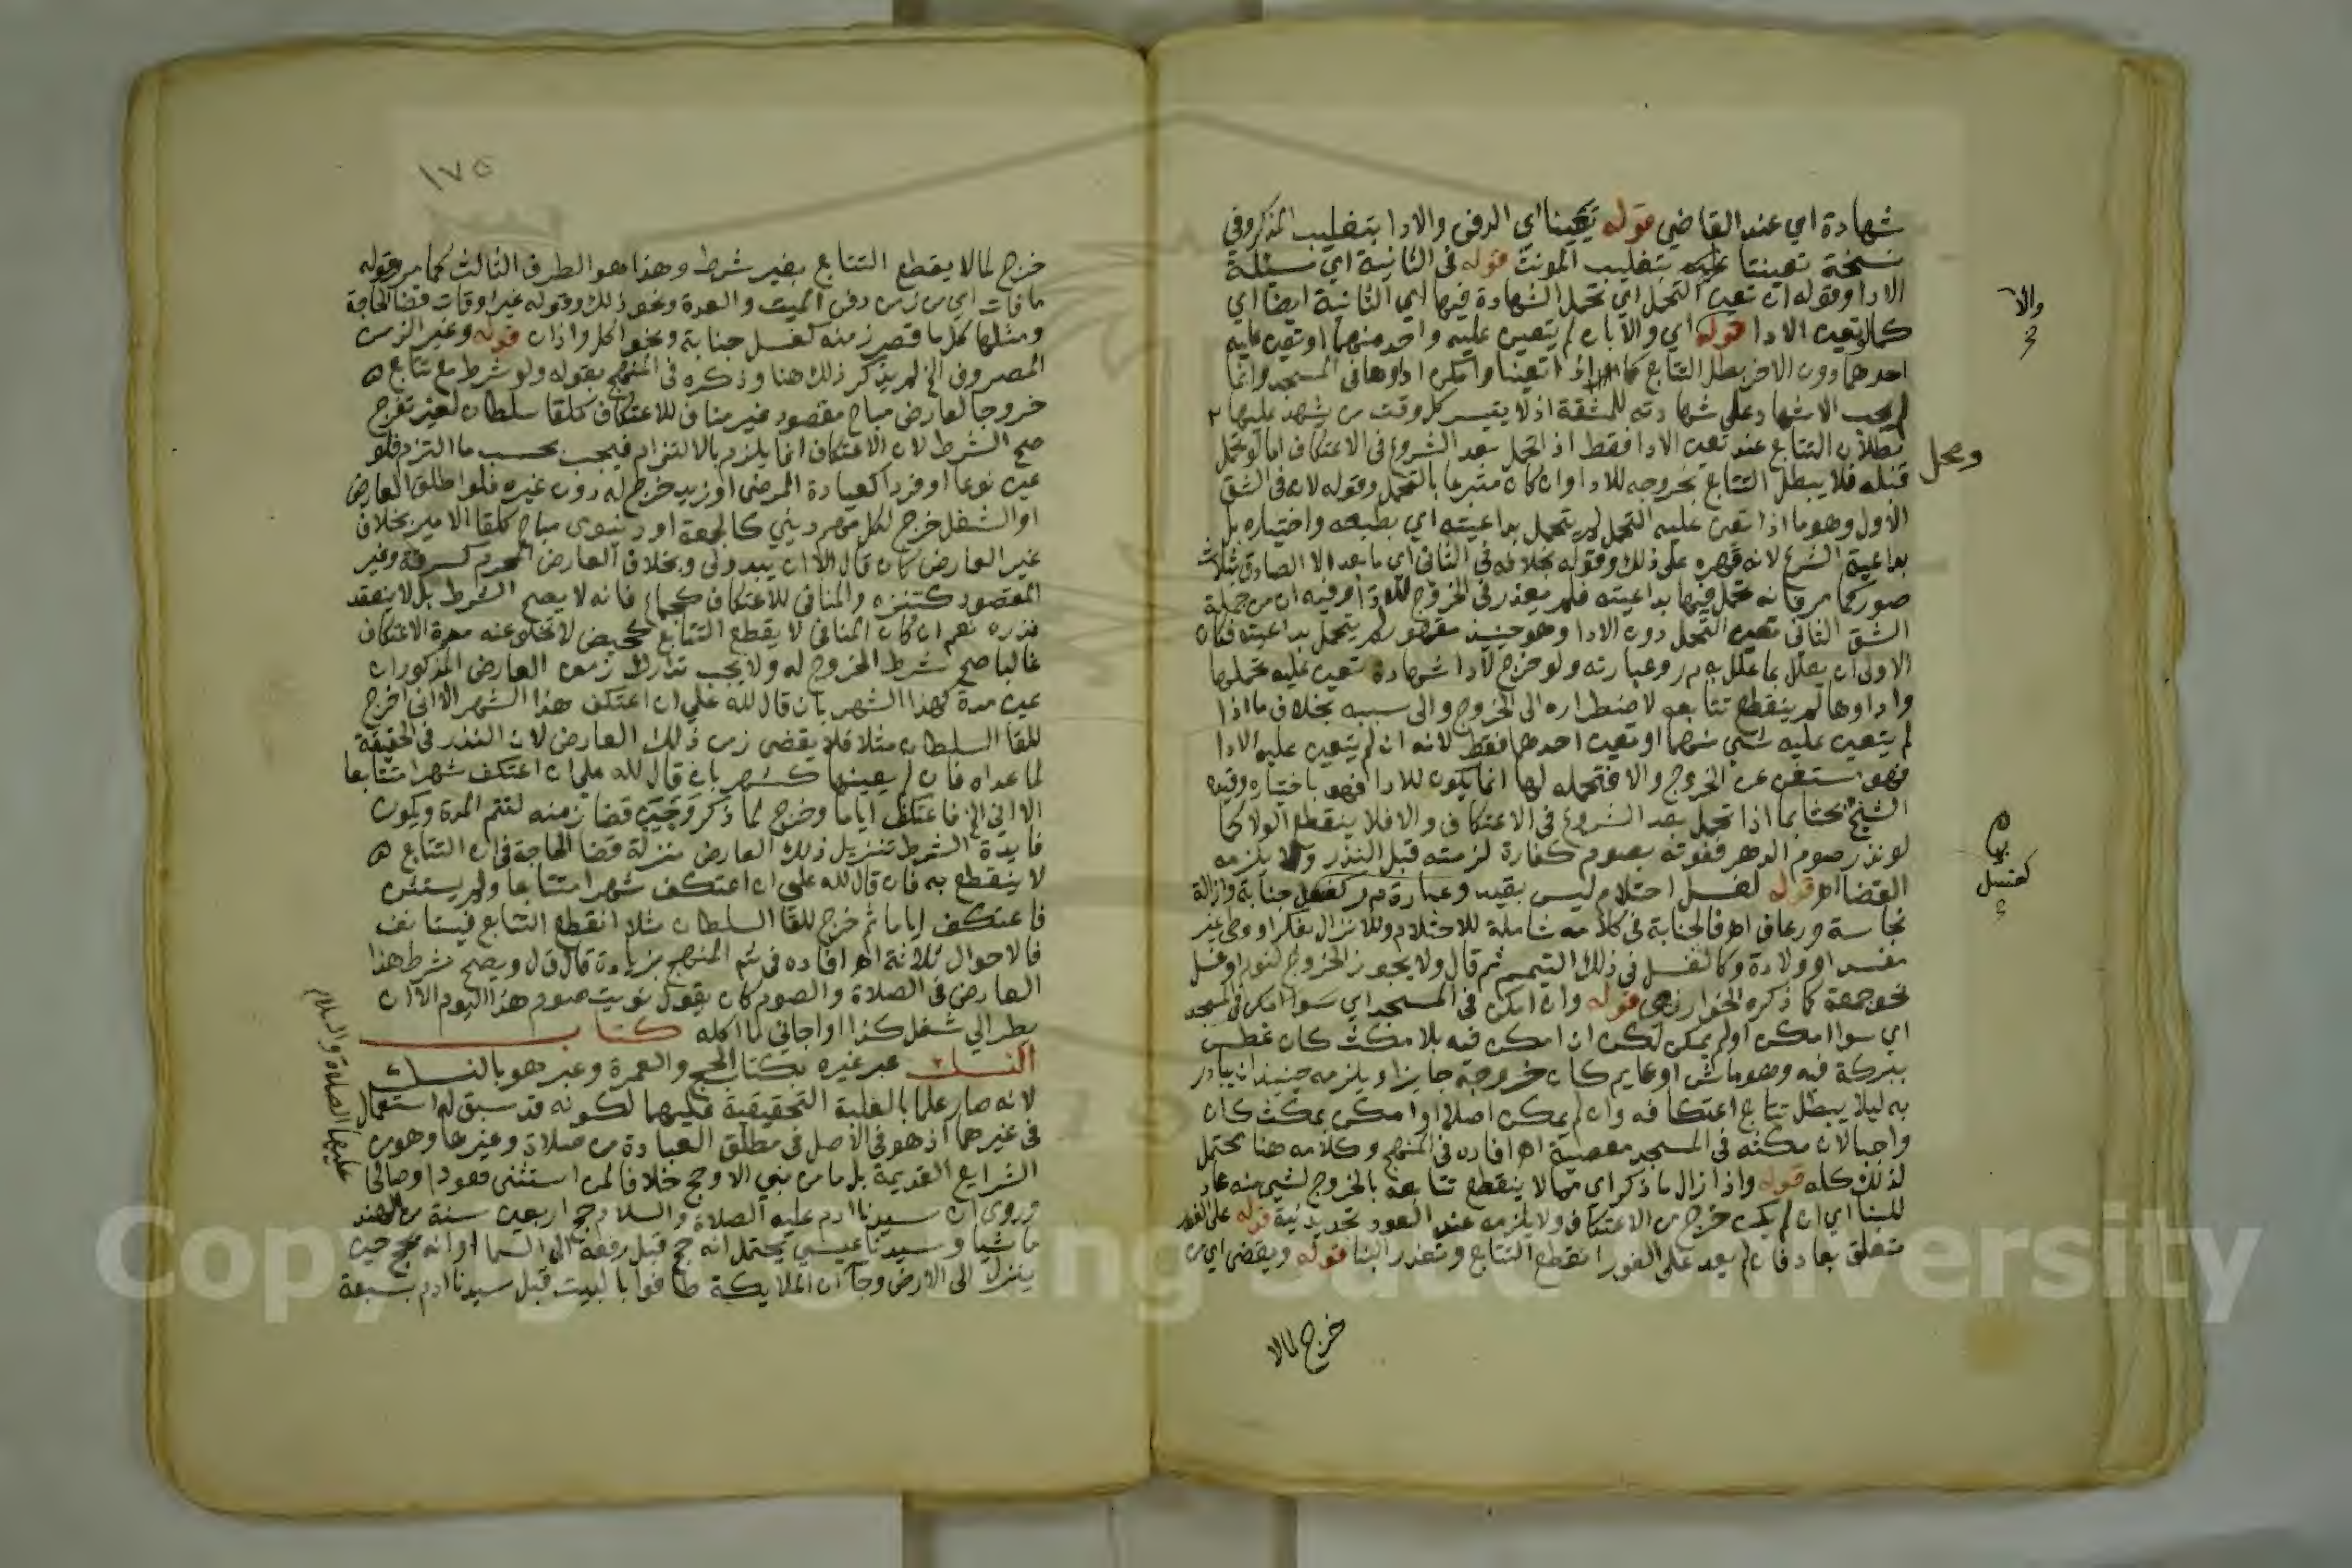 شهادة اي عند القاضي قوله تعينا اي الدفن والادا بتغليب المذكر وفي
نسخة تعينتا عليه بتغليب المونث قوله في الثانية اي مسئلة
الادا وقوله ان تعين التحمل اي تحمل الشهادة فيها اي الثانية ايضا اي
كما لو تعين الادا قوله اي والا بان لم يتعين عليه واحد منهما او تعين عليه
احدهما دون الاخر بطل التتابع كما اذا تعينا وامكن اداوها في المسجد وانما
لم يجب الاشهاد على شهادته للمشقة اذ لا يتيسر كل وقت من يشهد عليها
بطلان التتابع عند تعين الادا فقط اذ تحمل بعد الشروع في الاعتكاف اما لو تحمل
قبله فلا يبطل التتابع بخروجه للادا وان كان متبرعا بالتحمل وقوله لانه في الشق
الاول وهو ما اذا تعين عليه التحمل لم يتحمل بداعيته اي بطبعه واختياره بل
بداعية الشرع لانه قهره على ذلك وقوله بخلافه في الثاني اي ما بعد الا الصادق بثلاث
صور كما مر فانه تحمل فيها بداعيته فلم يعذر في الخروج للادا اهـ وفيه ان من جملة
الشق الثاني تعين التحمل دون الادا وهو حينيذ مقهور لم يتحمل بداعيته فكان
الاولى ان يعلل بما علل به م ر وعبارته ولو خرج لادا شهادة تعين عليه تحملها
واداوها لم ينقطع تتابعه لاضطراره الى الخروج والى سببه بخلاف ما اذا
لم يتعين عليه شي منهما او تعين احدهما فقط لانه ان لم يتعين عليه الادا
فهو مستغن عن الخروج والا فتحمله لها انما يكون للادا فهو باختياره وقيده
الشيخ بحثا بما اذا تحمل بعد الشروع في الاعتكاف والا فلا ينقطع الولا كما
لو نذر صوم الدهر ففوته بصوم كفارة لزمته قبل النذر ولا يلزمه
القضا اهـ قوله لغسل احتلام ليس بقيد وعبارة م ر كغسل جنابة وازالة
نجاسة ورعاف اهـ فالجنابة في كلامه شاملة للاحتلام وللانزال بفكر او وطي غير
مفسد او ولادة وكالغسل في ذلك التيمم ثم قال ولا يجوز الخروج لنوم او غسل
نحو جمعة كما ذكره الخوارزمي قوله وان امكن في المسجد اي سوا امكن في المسجد
اي سوا امكن او لم يمكن لكن ان امكن فيه بلا مكث كان غطس
ببركة فيه وهو ماش او عايم كان خروجه جايزا ويلزمه حينيذ ان يبادر
به ليلا يبطل تتابع اعتكافه وان لم يمكن اصلا او امكن بمكث كان
واجبا لان مكثه في المسجد معصية اهـ افاده في المنهج وكلامه هنا يحتمل
لذلك كله قوله واذا زال ما ذكر اي مما لا ينقطع تتابعه بالخروج لشي منه عاد
للبنا اي ان لم يكن خرج من الاعتكاف ولا يلزمه عند العود تجديد نية قوله على الفور
متعلق بعاد فان لم يعد على الفور انقطع التتابع وتعذر البنا قوله ويقضي اي من
والا
ومحل
كغسل
خرج لما لا
١٧٥
خرج لما لا يقطع التتابع بغير شرط وهذا هو الطرف الثالث كما مر وقوله
ما فات اي من زمن دفن الميت والعدة ونحو ذلك وقوله غير اوقات قضا الحاجة
ومثلها كل ما قصر زمنه كغسل جنابة ونحو اكل واذان قوله وغير الزمن
المصروف الخ لم يذكر ذلك هنا وذكره في المنهج بقوله ولو شرط مع تتابع
خروجا لعارض مباح مقصود غير مناف للاعتكاف كلقا سلطان لغير تفرج
صح الشرط لان الاعتكاف انما يلزم بالالتزام فيجب بحسب ما التزم فلو
عين نوعا او فردا كعيادة المرضى او زيد خرج له دون غيره فلو اطلق العارض
او الشغل خرج لكل مهم ديني كالجمعة او دنيوى مباح كلقا الامير بخلاف
غير العارض كان قال الا ان يبدو لي وبخلاف العارض المحرم كسرقة وغير
المقصود كتنزه والمنافي للاعتكاف كجماع فانه لا يصح الشرط بل لا ينعقد
نذره نعم ان كان المنافي لا يقطع التتابع كحيض لا تخلو عنه مدة الاعتكاف
غالبا صح شرط الخروج له ولا يجب تدارك زمن العارض المذكور ان
عين مدة كهذا الشهر بان قال لله علي ان اعتكف هذا الشهر الا اني اخرج
للقا السلطان مثلا فلا يقضي زمن ذلك العارض لان النذر في الحقيقة
لما عداه فان لم يعينها كشهر بان قال لله علي ان اعتكف شهرا متتابعا
الا اني الخ فاعتكف اياما وخرج لما ذكر وجب قضا زمنه لتتم المدة ويكون
فايدة الشرط تنزيل ذلك العارض منزلة قضا الحاجة في ان التتابع
لا ينقطع به فان قال لله علي ان اعتكف شهرا متتابعا ولم يستثن
فاعتكف اياما ثم خرج للقا السلطان مثلا انقطع التتابع فيستانف
فالاحوال ثلاثة اهـ افاده في شرح المنهج بزيادة قال ق ل ويصح شرط هذا
العارض في الصلاة والصوم كان يقول نويت صوم هذا اليوم الا ان
يطرا لي شغل كذا او اجاني لما اكله كتاب
النسك عبر غيره بكتاب الحج والعمرة وعبر هو بالنسك
لانه صار علما بالغلبة التحقيقية عليهما لكونه قد سبق له استعمال
في غيرهما اذ هو في الاصل في مطلق العبادة من صلاة وغيرها وهو من
الشرايع القديمة بل ما من نبي الا وحج خلافا لمن استثنى هودا وصالحا
وروي ان سيدنا ادم عليه الصلاة والسلام حج اربعين سنة من الهند
ماشيا وسيدنا عيسى يحتمل انه حج قبل رفعه الى السما او انه يحج حين
ينزل الى الارض وجا ان الملايكة طافوا بالبيت قبل سيدنا ادم بسبعة
عليهما الصلاة والسلام
Copyright © King Saud University